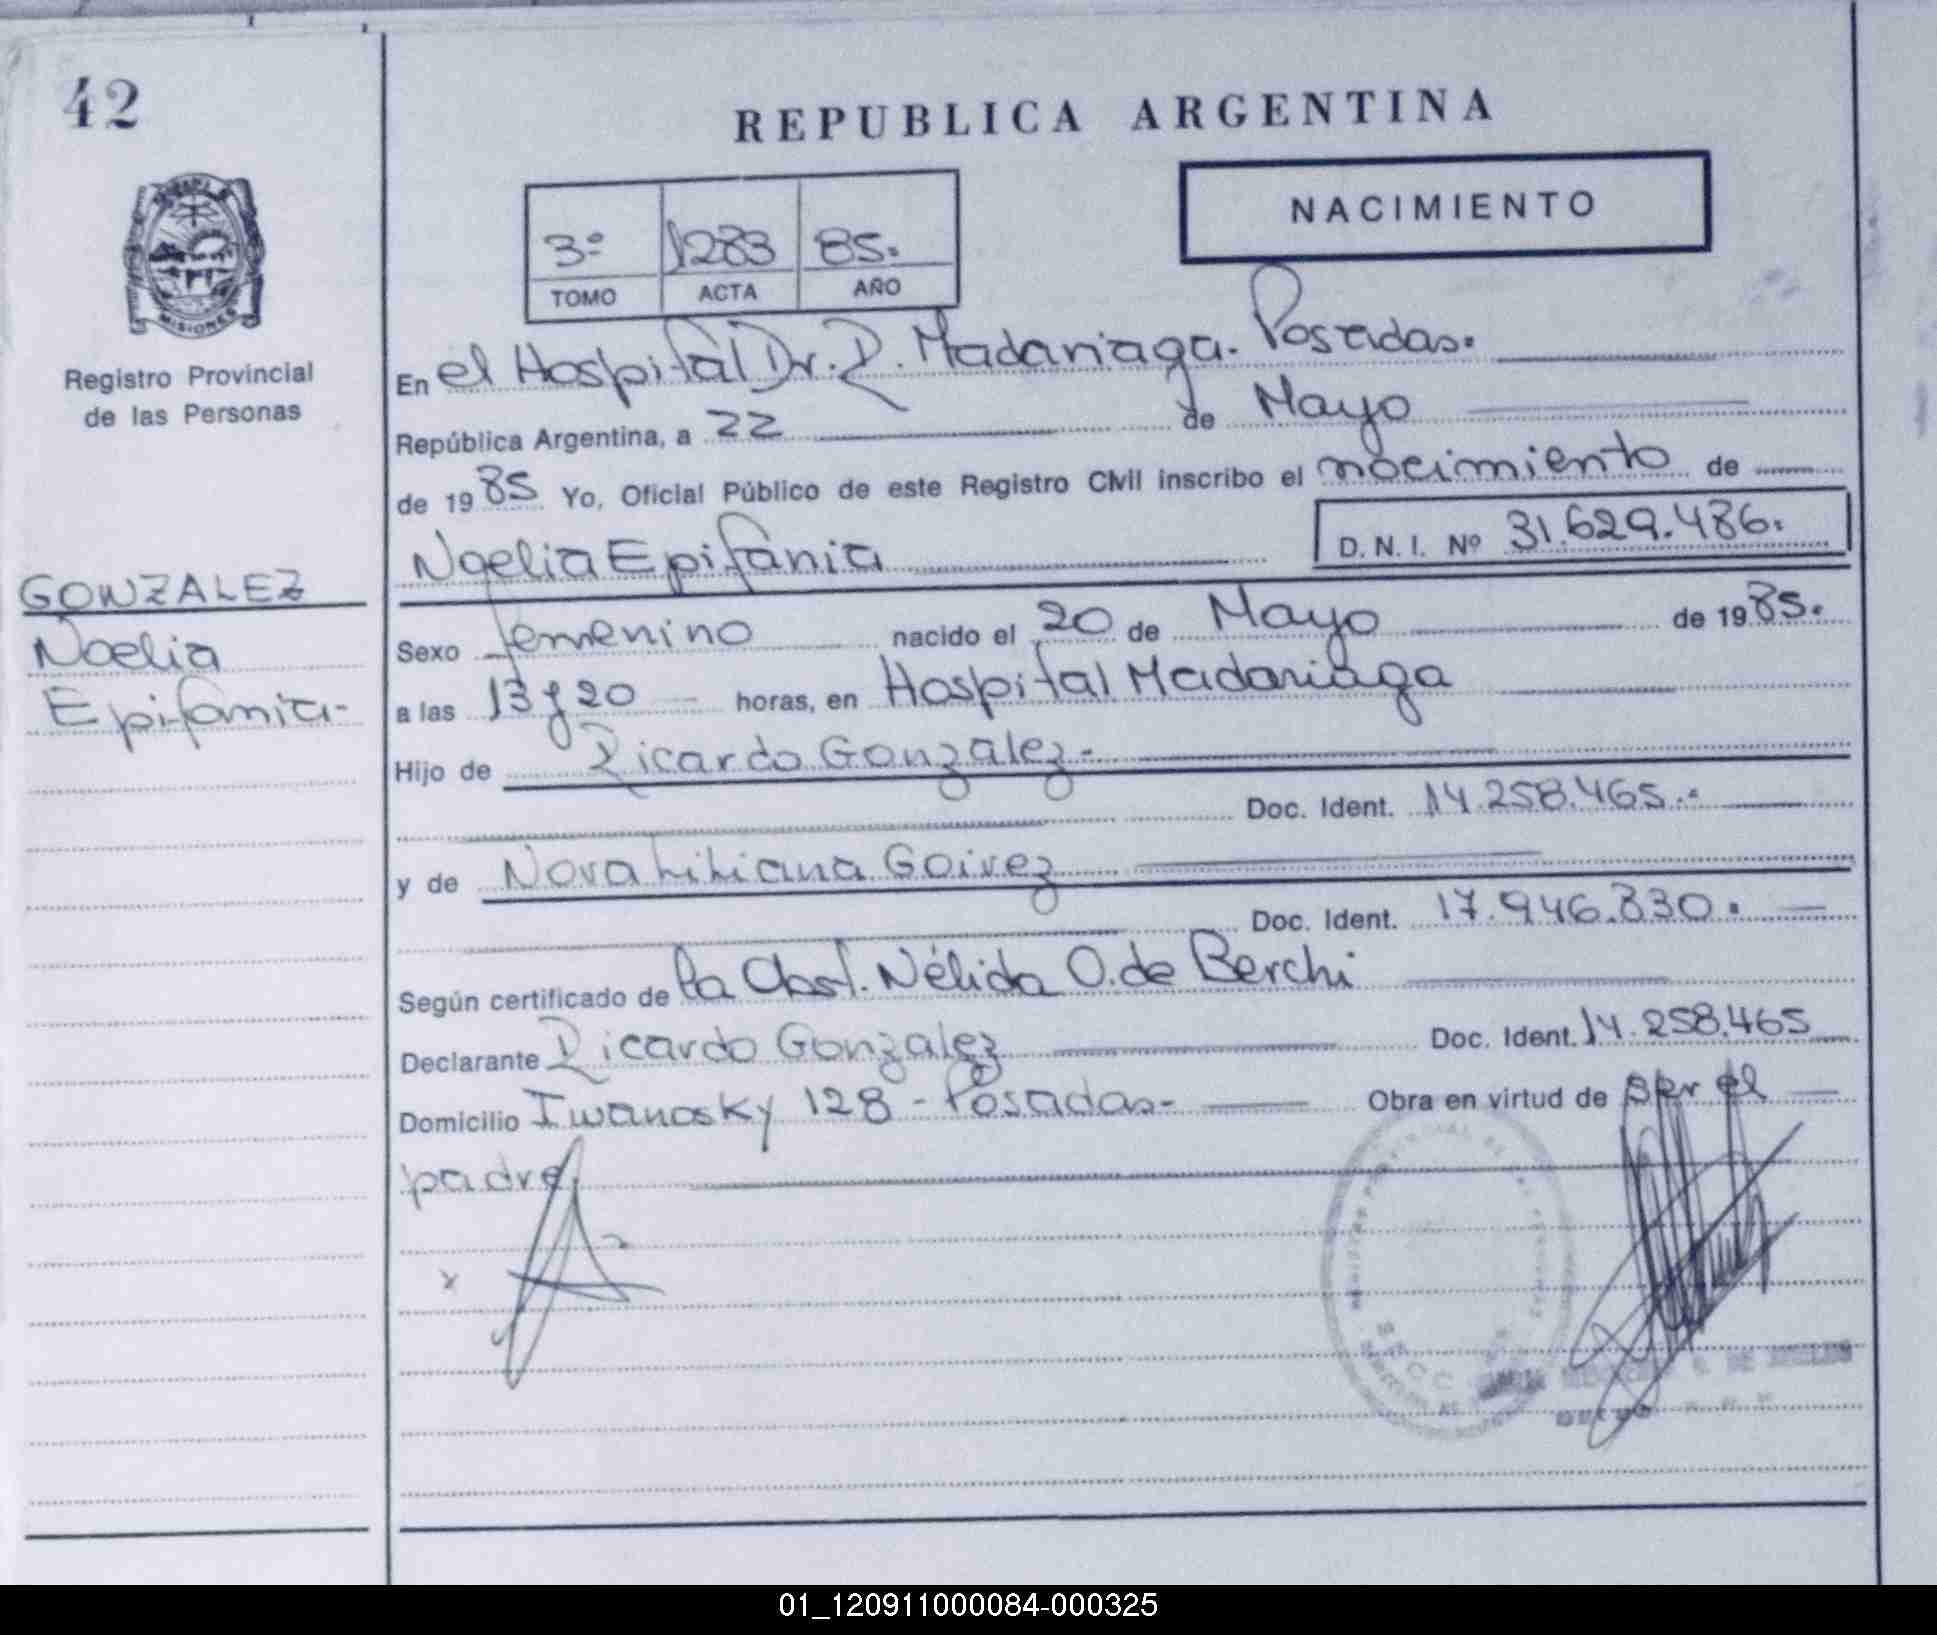 42
REPUBLICA ARGENTINA
NACIMIENTO
3º 1283 85.
TOMO ACTA AÑO
MISIONES
Registro Provincial
de las Personas
GONZALEZ
Noelia
Epifania-
En el Hospital Dr. R. Madariaga. Posadas.
República Argentina, a 22 de Mayo
de 1985 Yo, Oficial Público de este Registro Civil inscribo el nacimiento de
Noelia Epifania D. N. I. Nº 31.629.486.
Sexo femenino nacido el 20 de Mayo de 1985.
a las 13 y 20 horas, en Hospital Madariaga
Hijo de Ricardo Gonzalez.
Doc. Ident. 14.258.465.
y de Nora Liliana Goirez
Doc. Ident. 17.946.830.
Según certificado de la Obst. Nélida O. de Berchi
Declarante Ricardo Gonzalez Doc. Ident. 14.258.465
Domicilio Iwanosky 128 - Posadas- Obra en virtud de ser el
padre
x
01_120911000084-000325